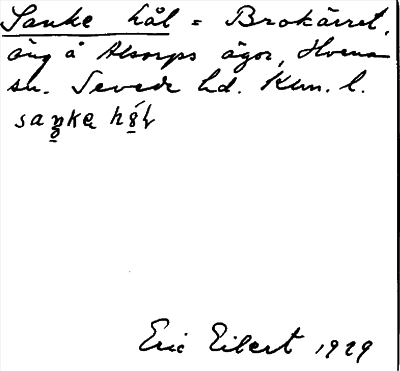 Sanke hål = Brokärret,
äng å Alsarps ägor, Hvena
sn. Sevede hd. Klm. l.
Eric Eibert 1929